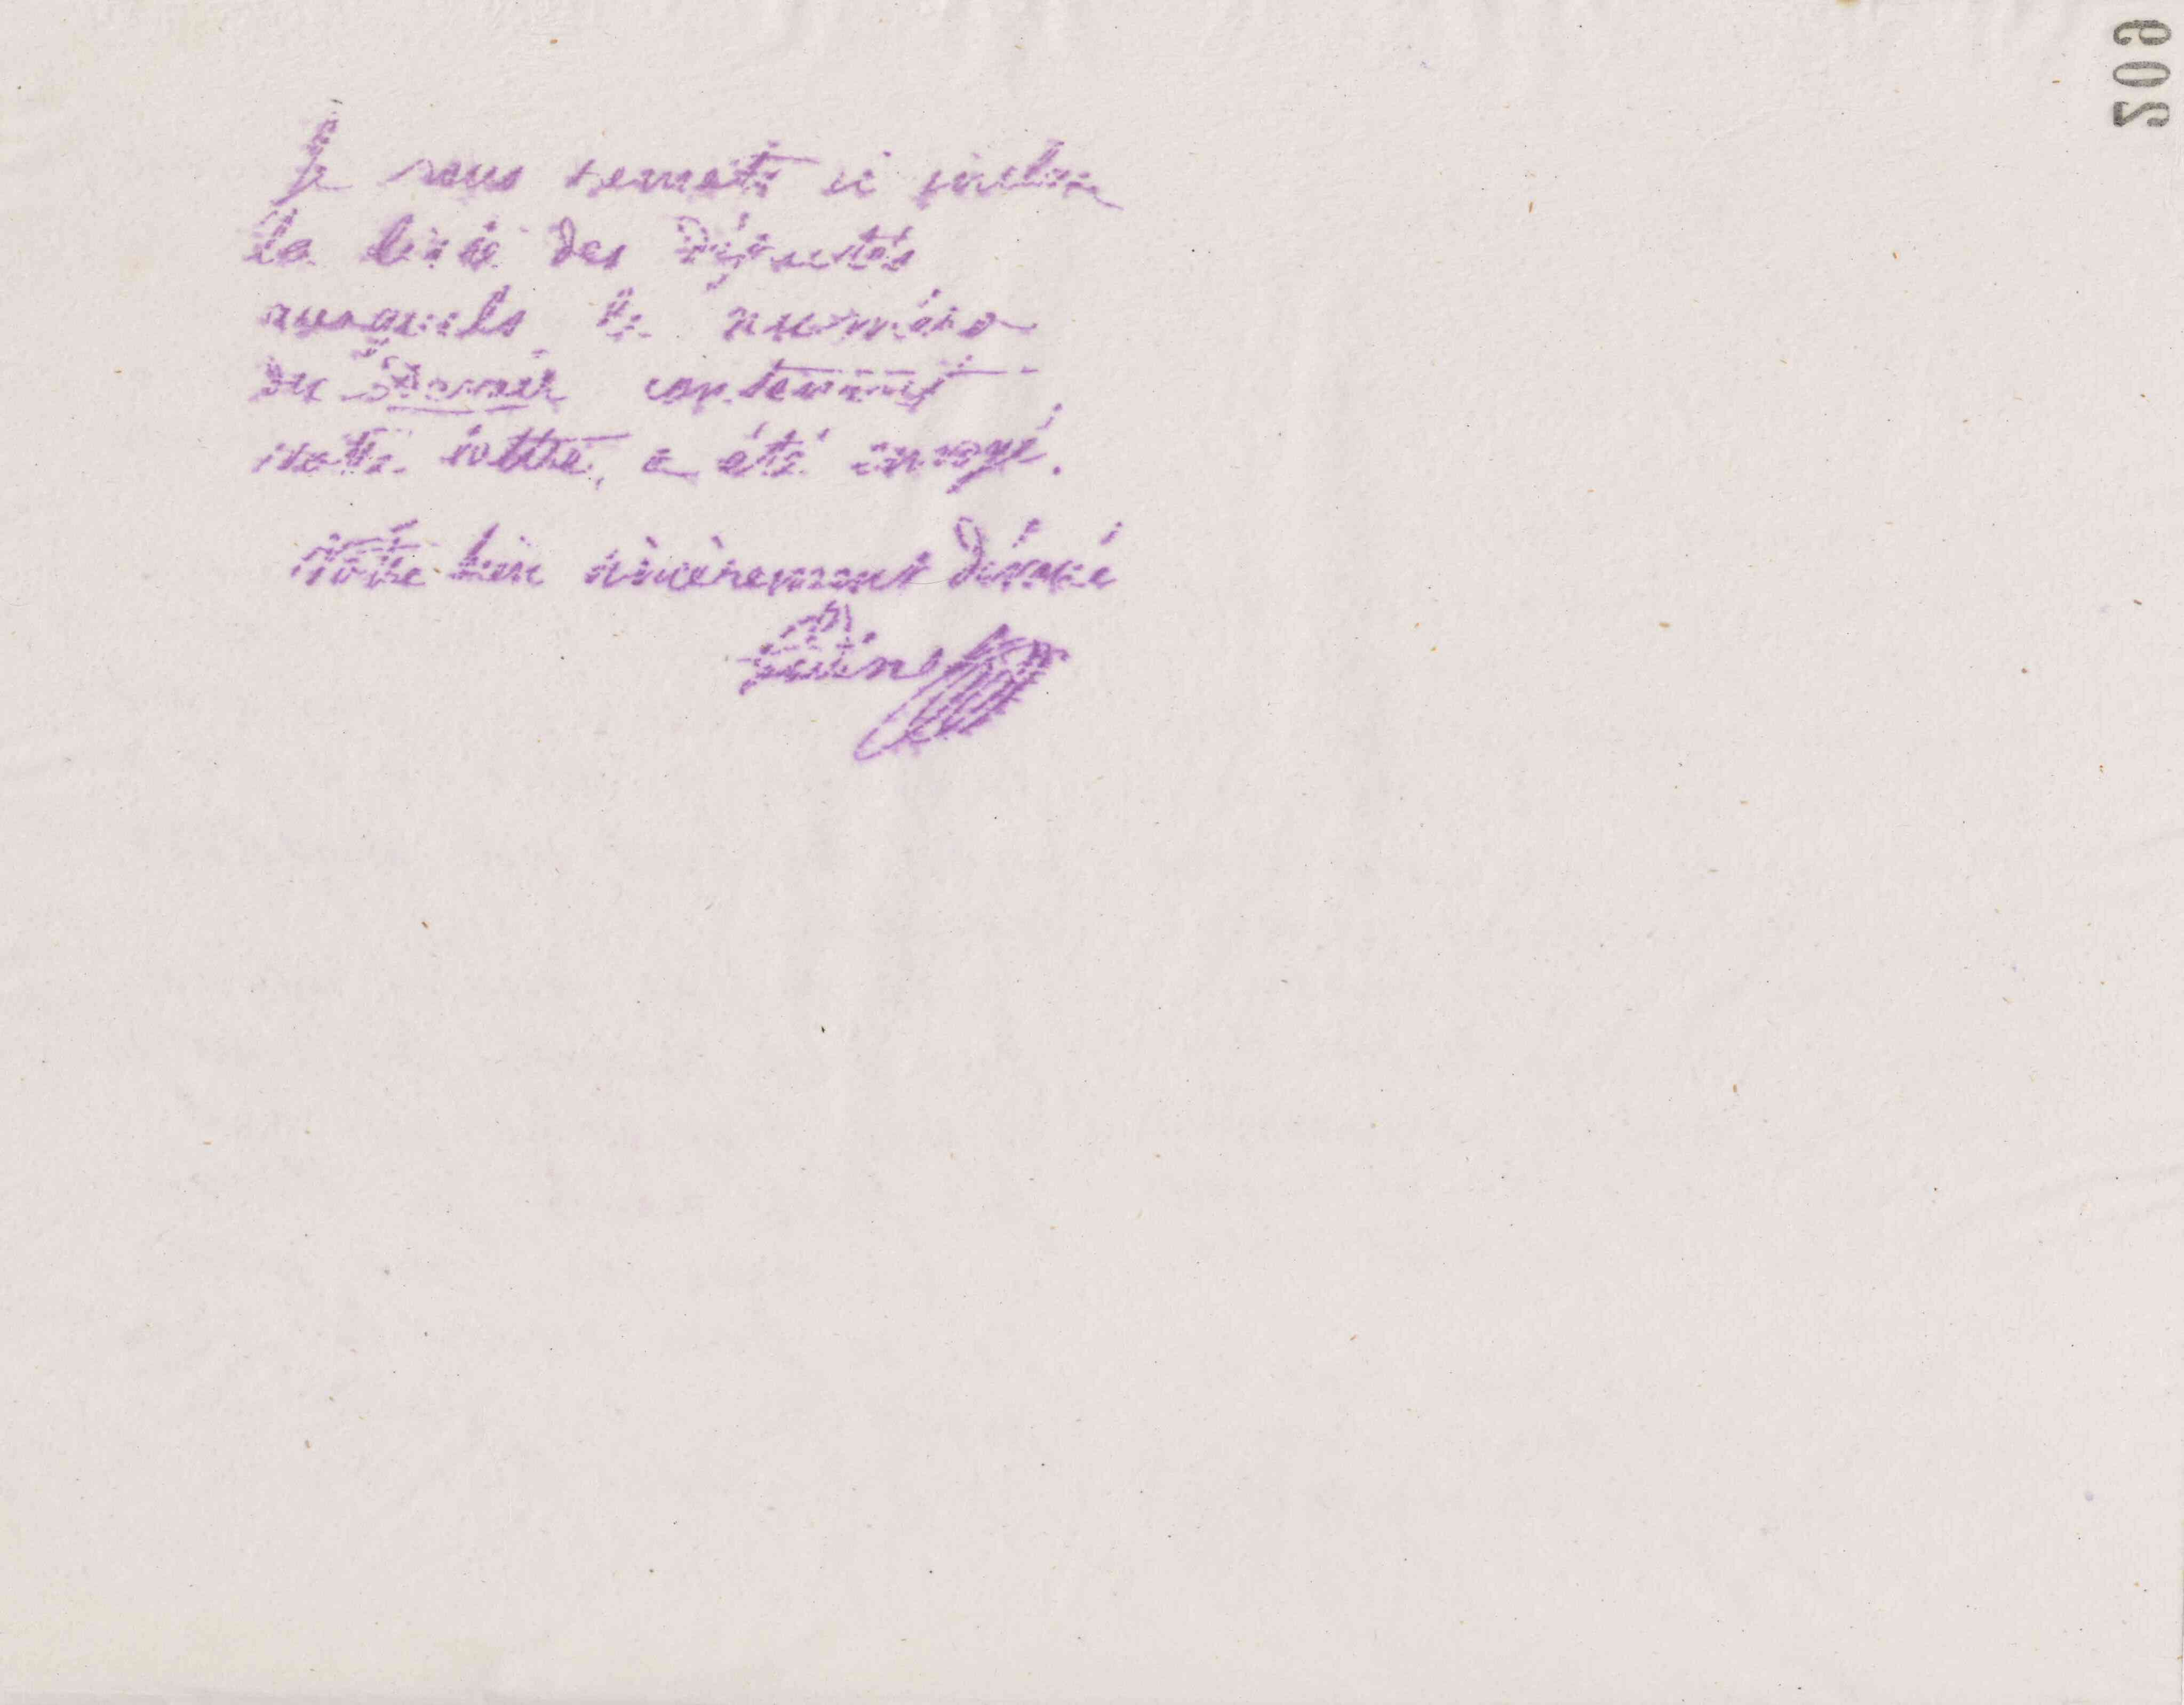 209
Je vous remets ci inclus
la liste des Députés
auxquels le numéro
du Devoir contenant
votre lettre, a été envoyé.
Votre bien sincèrement dévoué
Godin